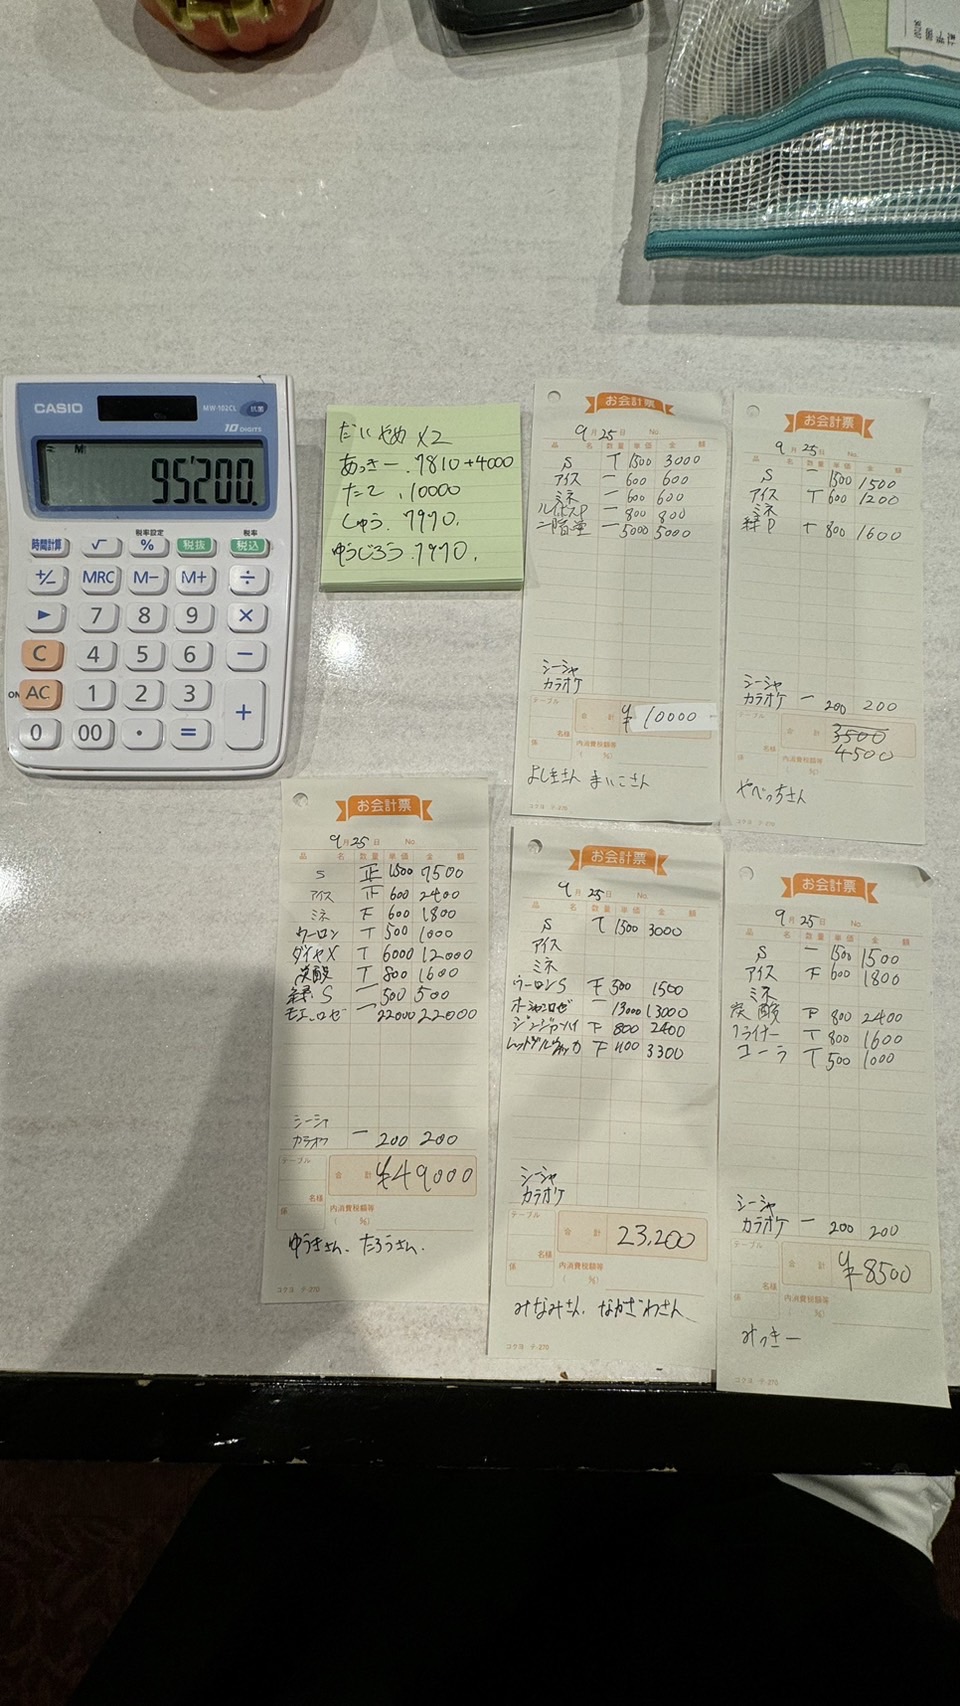 CASIO
MW-102CL 抗菌
10 DIGITS
M
95'200.
税率設定 税率
時間計算 √ % 税抜 税込
+/- MRC M- M+ ÷
▶ 7 8 9 ×
C 4 5 6 −
ON AC 1 2 3 +
0 00 · =
だいやめ X2
あっきー.7810+4000
たこ.10000
しゅう.7970.
ゆうじろう.7970.
お会計票
9月25日 No.
品 名 数量 単価 金 額
S T 1500 3000
アイス 一 600 600
ミネ 一 600 600
一 800 800
二階堂 一 5000 5000
シーシャ
カラオケ
テーブル
合 計 ¥10000
名様
係
内消費税額等
( %)
よしきさん まいこさん
コクヨ テ-270
お会計票
9月25日 No.
品 名 数量 単価 金 額
S 一 1500 1500
アイス T 600 1200
ミネ
緑P T 800 1600
シーシャ
カラオケ 一 200 200
テーブル
合 計 3500
4500
名様
係
内消費税額等
( %)
やべっちさん
コクヨ テ-270
お会計票
9月25日 No.
品 名 数量 単価 金 額
S 正 1500 7500
アイス 600 2400
ミネ F 600 1800
ウーロン T 500 1000
ダイヤX T 6000 12000
炭酸 T 800 1600
緑S 一 500 500
モエ.ロゼ 一 22000 22000
シーシャ
カラオケ 一 200 200
テーブル
合 計 ¥49000
名様
係
内消費税額等
( %)
ゆうきさん、たろうさん.
コクヨ テ-270
お会計票
9月25日 No.
品 名 数量 単価 金 額
S T 1500 3000
アイス
ミネ
ウーロンS F 500 1500
一 13000 13000
ジンジャーハイ F 800 2400
F 1100 3300
シーシャ
カラオケ
テーブル
合 計 23,200
名様
係
内消費税額等
( %)
みなみさん、なかざわさん
コクヨ テ-270
お会計票
9月25日 No.
品 名 数量 単価 金 額
S 一 1500 1500
アイス F 600 1800
ミネ
炭酸 F 800 2400
T 800 1600
コーラ T 500 1000
シーシャ
カラオケ 一 200 200
テーブル
合 計 ¥8500
名様
係
内消費税額等
( %)
みっきー
コクヨ テ-270